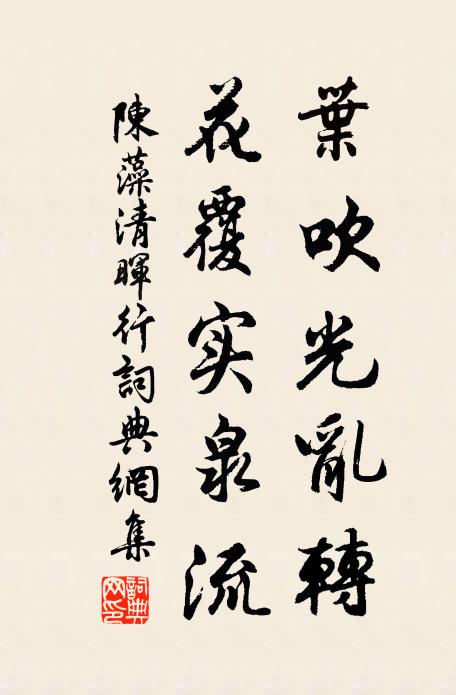 葉吹光亂轉
花覆实泉流
陳藻清暉行詞典網集
詞典网印